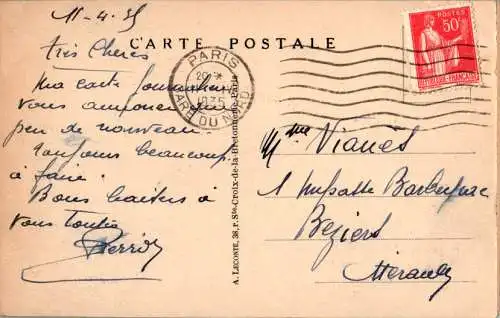 11-4-35
CARTE POSTALE
Très Chères
Ma carte journalière
vous
peu de nouveau.
Toujours beaucoup
à faire.
Bons baisers à
vous toutes
Pierrot
PARIS
20
1935
GARE DU NORD
POSTES
50c
A. LECONTE, 38, R. Ste-Croix-de-la-Bretonnerie-Paris
Mme Vianès
1 Impasse
Béziers
Hérault